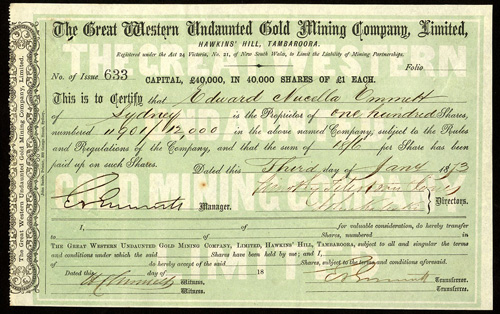 The Great Western Undaunted Gold Mining Company, Limited,
HAWKINS' HILL, TAMBAROORA.
Registered under the Act 24 Victoria, No. 21, of New South Wales, to Limit the Liability of Mining Partnerships.
No. of Issue 633
Folio
CAPITAL, £40,000, IN 40,000 SHARES OF £1 EACH.
This is to Certify that Edward Nucella Emmett
of Sydney is the Proprietor of one hundred Shares,
numbered 11,901/12,000 in the above named Company, subject to the Rules
and Regulations of the Company, and that the sum of per Share has been
paid up on such Shares. Dated this Third day of Jany 1873
Manager.
Directors.
I, for valuable consideration, do hereby transfer
to Shares, numbered in
THE GREAT WESTERN UNDAUNTED GOLD MINING COMPANY, LIMITED, HAWKINS' HILL, TAMBAROORA, subject to all and singular the terms
and conditions under which the said Shares have been held by me; and I,
of do hereby accept of the said Shares, subject to the terms and conditions aforesaid.
Dated this day of 18
Witness.
Witness.
Transferror.
Transferree.
The Great Western Undaunted Gold Mining Company, Limited.